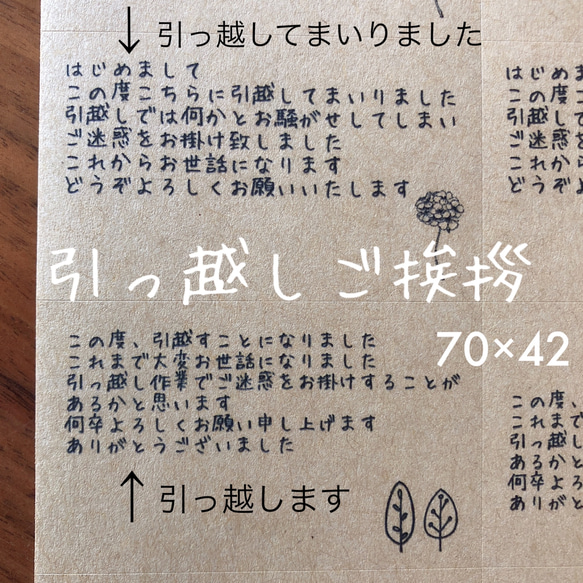 ↓ 引っ越してまいりました
はじめまして
この度こちらに引越してまいりました
引越しでは何かとお騒がせしてしまい
ご迷惑をお掛け致しました
これからお世話になります
どうぞよろしくお願いいたします
はじめま
この度こ
引越しで
ご迷惑
これか
どうぞ
引っ越しご挨拶
70×42
この度、引越すことになりました
これまで大変お世話になりました
引っ越し作業でご迷惑をお掛けすることが
あるかと思います
何卒よろしくお願い申し上げます
ありがとうございました
この度、
これまで
引っ越し
あるかと
何卒よろ
ありがと
↑ 引っ越します